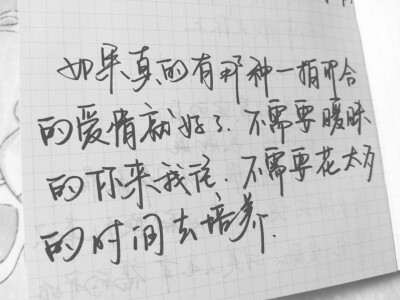 如果真的有那种一拍即合
的爱情就好了．不需要暧昧
的你来我往．不需要花太多
的时间去培养．